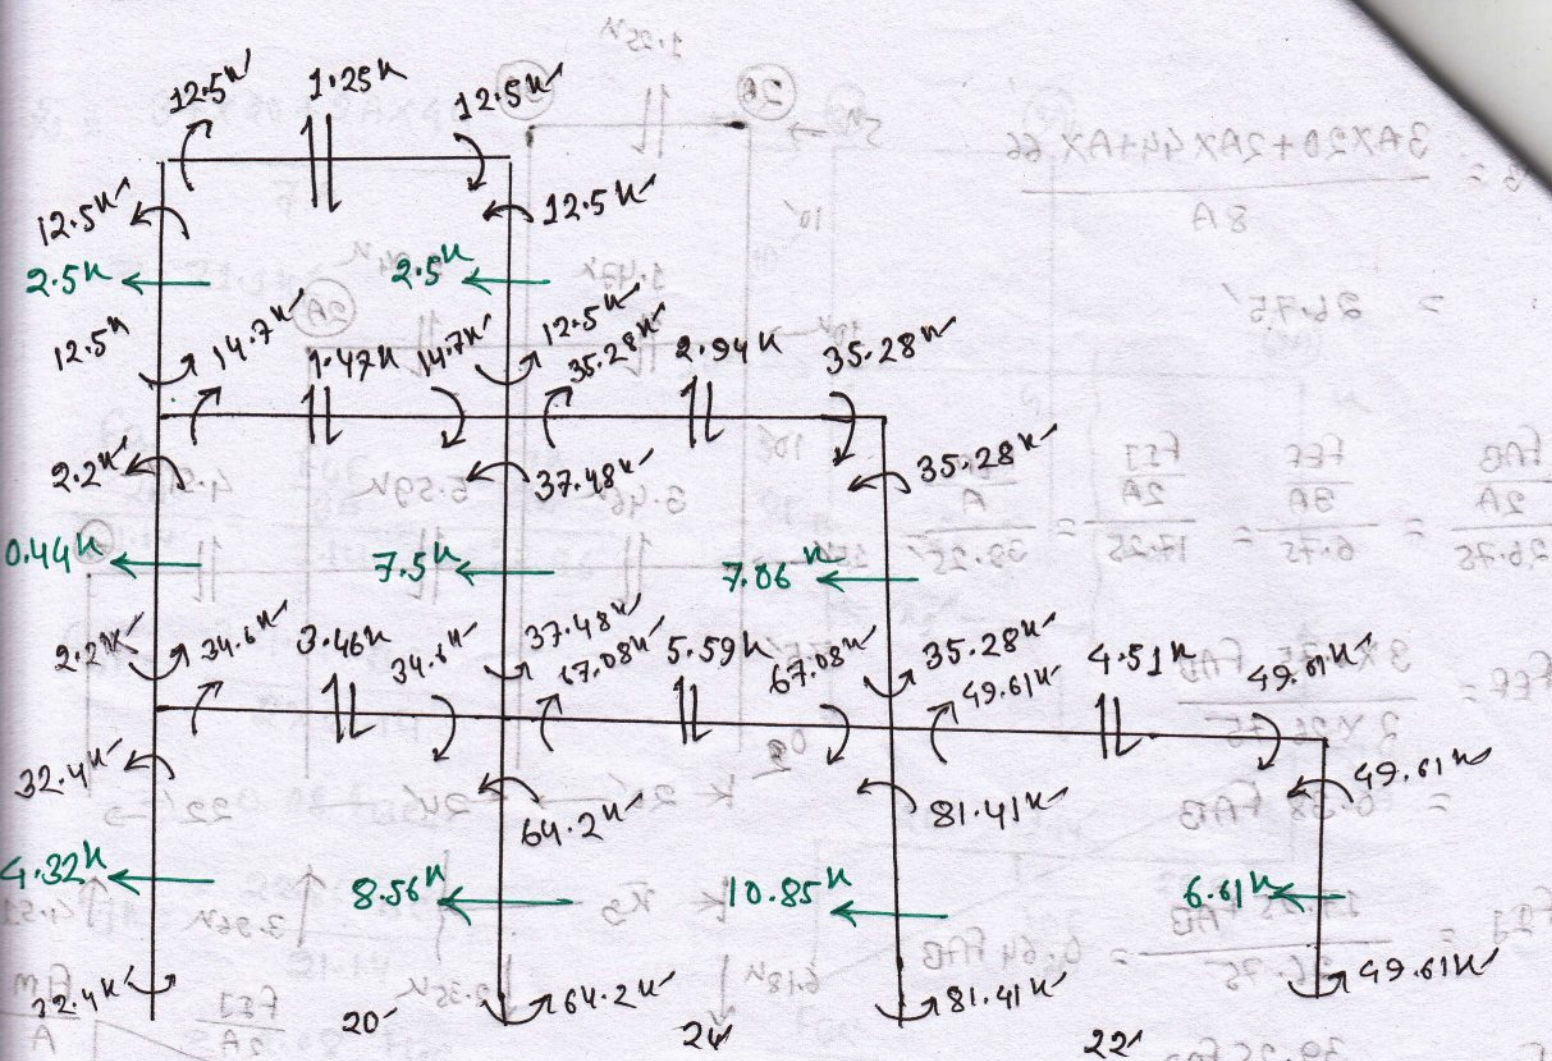 12.5k' 1.25k 12.5k'
12.5k' 12.5k'
2.5k 2.5k
12.5k 14.7k' 1.47k 14.7k' 12.5k' 35.28k' 2.94k 35.28k'
2.2k' 37.48k' 35.28k'
0.44k 7.5k 7.06k
2.2k' 34.6k' 3.46k 34.6k' 37.48k' 67.08k' 5.59k 67.08k' 35.28k' 49.61k' 4.51k 49.61k'
32.4k' 64.2k' 81.41k' 49.61k'
4.32k 8.56k 10.85k 6.61k
32.4k' 64.2k' 81.41k' 49.61k'
20' 24' 22'